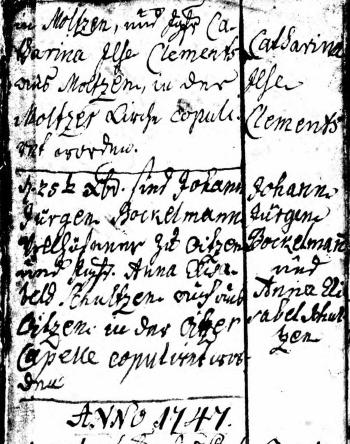 in Moltzen, und Jgfr. Ca-
tharina Ilse Clements
aus Moltzen, in der
Moltzer Kirche copuli-
ret worden.
Catharina
Ilse
Clements
sind Johann
Jürgen Bockelmann
zu Oitzen
und Jgfr. Anna Elisa-
beth Schultzen auch aus
Oitzen in der Oitzer
Capelle copuliret wor-
den
Johann
Jürgen
Bockelmann
und
Anna Eli
sabet Schul
tzen
ANNO 1747.